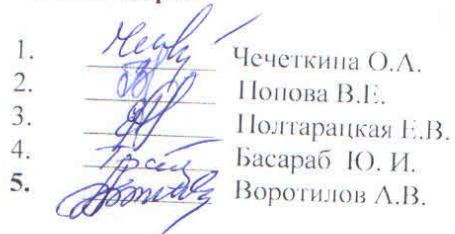 1. Чечеткина О.А.
2. Попова В.Е.
3. Полтарацкая Е.В.
4. Басараб Ю. И.
5. Воротилов А.В.